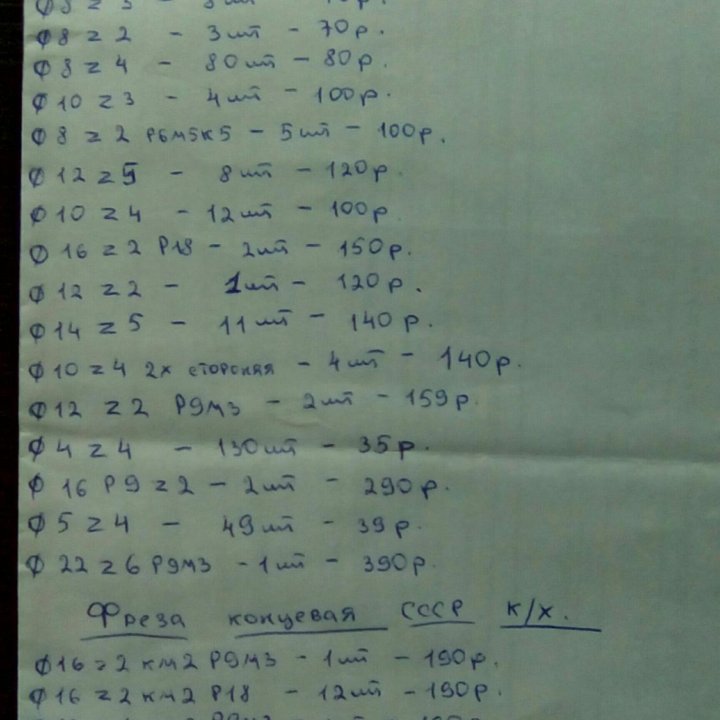 Ф 8 z 2 - 3шт - 70р.
Ф 8 z 4 - 80шт - 80р.
Ф 10 z 3 - 4шт - 100р.
Ф 8 z 2 Р6М5К5 - 5шт - 100р.
Ф 12 z 5 - 8шт - 120р.
Ф 10 z 4 - 12шт - 100р.
Ф 16 z 2 Р18 - 2шт - 150р.
Ф 12 z 2 - 1шт - 120р.
Ф 14 z 5 - 11шт - 140р.
Ф 10 z 4 2х сторская - 4шт - 140р.
Ф 12 z 2 Р9М3 - 2шт - 159р.
Ф 4 z 4 - 130шт - 35р.
Ф 16 Р9 z 2 - 2шт - 290р.
Ф 5 z 4 - 49шт - 39р.
Ф 22 z 6 Р9М3 - 1шт - 390р.
Фреза концевая СССР к/х.
Ф 16 z 2 км2 Р9М3 - 1шт - 190р.
Ф 16 z 2 км2 Р18 - 12шт - 190р.